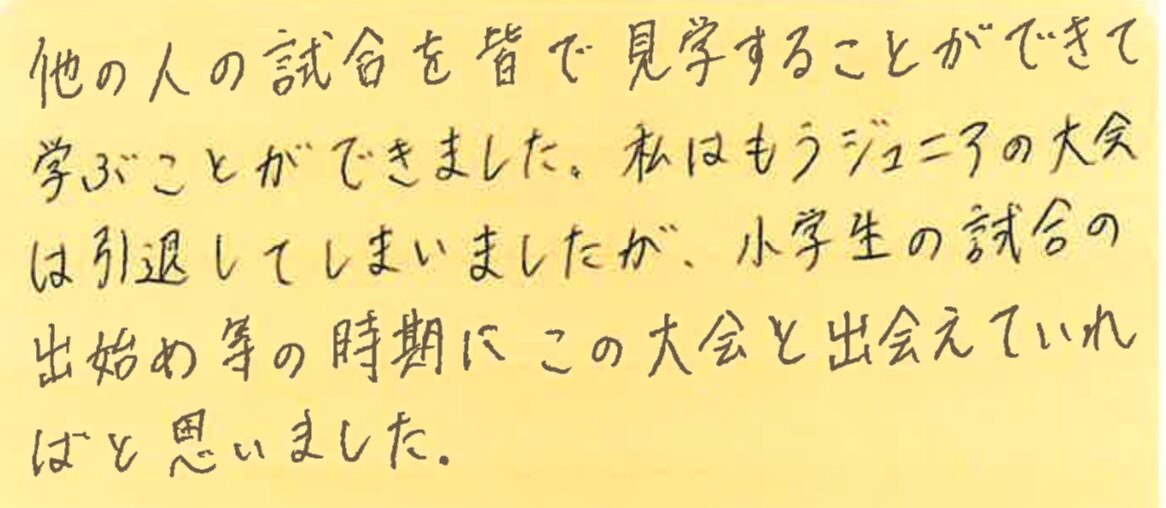 他の人の試合を皆で見学することができて
学ぶことができました。私はもうジュニアの大会
は引退してしまいましたが、小学生の試合の
出始め等の時期にこの大会と出会えていれ
ばと思いました。